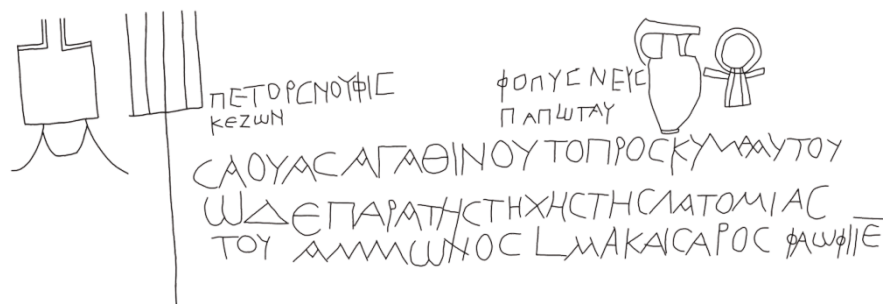 ΠΕΤΟΡϹΝΟΥΦΙϹ
ΚΕΖΩΝ
ΦΟΠΥϹΝΕΥϹ
ΠΑΠΩΤΑΥ
ϹΑΟΥΑϹΑΓΑΘΙΝΟΥΤΟΠΡΟϹΚΥΜΑΑΥΤΟΥ
ΩΔΕΠΑΡΑΤΗϹΤΗΧΗϹΤΗϹΛΑΤΟΜΙΑϹ
ΤΟΥ ΑΜΜΩΝΟϹ LΜΑΚΑΙϹΑΡΟϹ ΦΑΩΦΙΙΕ̅